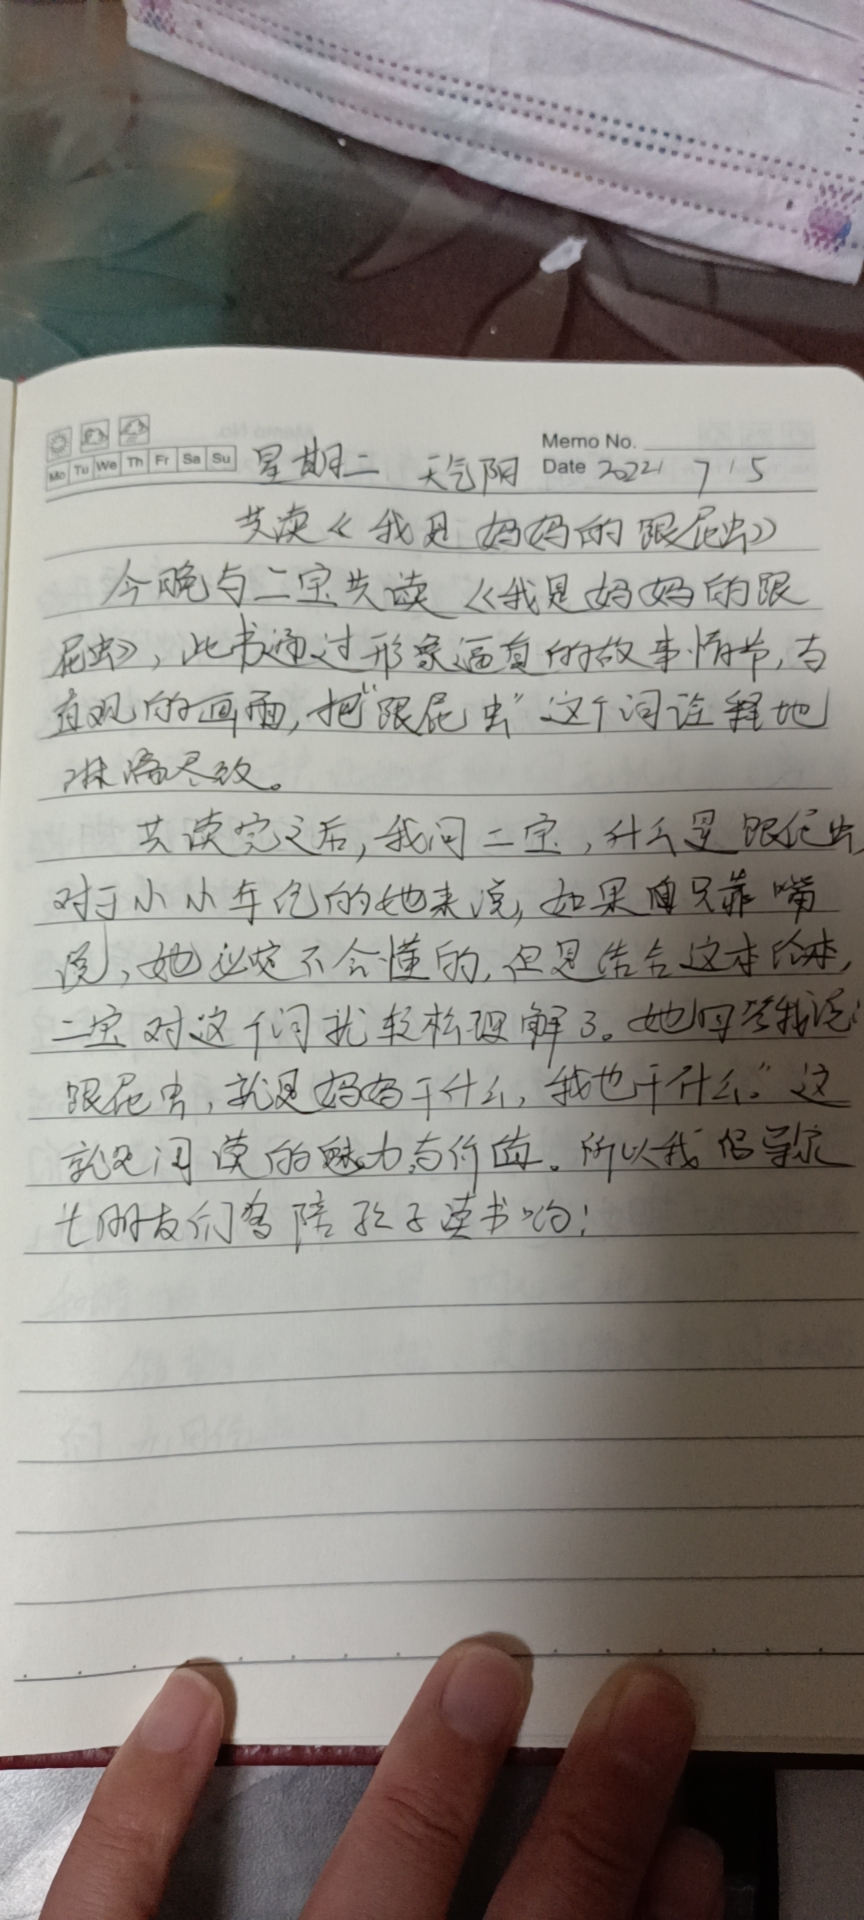 Memo No.
Mo Tu We Th Fr Sa Su 星期二 天气阴 Date 2022 7 5
共读《我是妈妈的跟屁虫》
今晚与二宝共读《我是妈妈的跟
屁虫》，此书通过形象逼真的故事情节，与
直观的画面，把“跟屁虫”这个词诠释地
淋漓尽致。
共读完之后，我问二宝，什么是跟屁虫，
对于小小年纪的她来说，如果只靠嘴
说，她必定不会懂的，但是结合这本绘本，
二宝对这个词就轻松理解了。她回答我说：
跟屁虫，就是妈妈干什么，我也干什么。”这
就是阅读的魅力与价值。所以我倡导家
长朋友们多陪孩子读书哟！